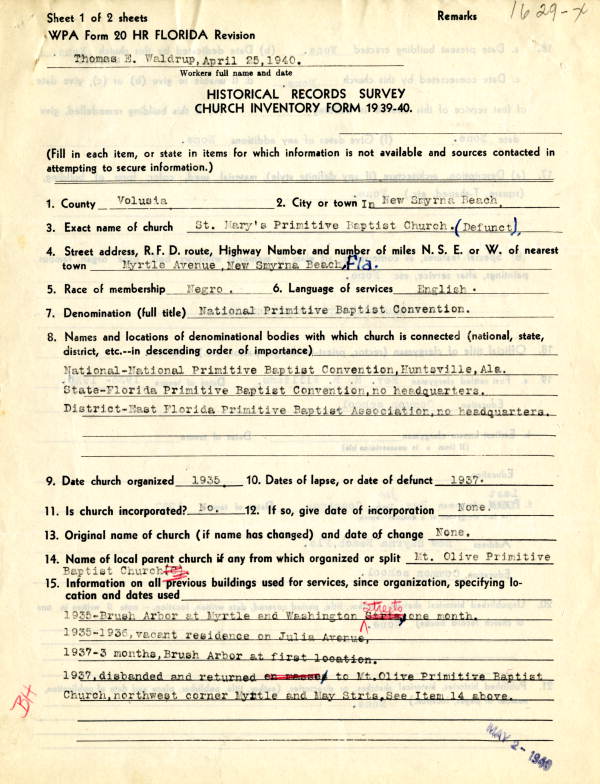 Sheet 1 of 2 sheets
Remarks
1629-x
WPA Form 20 HR FLORIDA Revision
Thomas E. Waldrup, April 25, 1940.
Workers full name and date
HISTORICAL RECORDS SURVEY
CHURCH INVENTORY FORM 1939-40.
(Fill in each item, or state in items for which information is not available and sources contacted in
attempting to secure information.)
1. County Volusia 2. City or town In New Smyrna Beach
3. Exact name of church St. Mary's Primitive Baptist Church. (Defunct).
4. Street address, R. F. D. route, Highway Number and number of miles N. S. E. or W. of nearest
town Myrtle Avenue, New Smyrna Beach, Fla.
5. Race of membership Negro. 6. Language of services English.
7. Denomination (full title) National Primitive Baptist Convention.
8. Names and locations of denominational bodies with which church is connected (national, state,
district, etc.--in descending order of importance)
National-National Primitive Baptist Convention, Huntsville, Ala.
State-Florida Primitive Baptist Convention, no headquarters.
District-East Florida Primitive Baptist Association, no headquarters.
9. Date church organized 1935 10. Dates of lapse, or date of defunct 1937.
11. Is church incorporated? No. 12. If so, give date of incorporation None.
13. Original name of church (if name has changed) and date of change None.
14. Name of local parent church if any from which organized or split Mt. Olive Primitive
Baptist Church
15. Information on all previous buildings used for services, since organization, specifying lo-
cation and dates used
1935-Brush Arbor at Myrtle and Washington Strts, streets one month.
1935-1936, vacant residence on Julia Avenue,
1937-3 months, Brush Arbor at first location.
1937, disbanded and returned en masse, to Mt. Olive Primitive Baptist
Church, northwest corner Myrtle and May Strts, See Item 14 above.
BH
MAY 2 - 1940